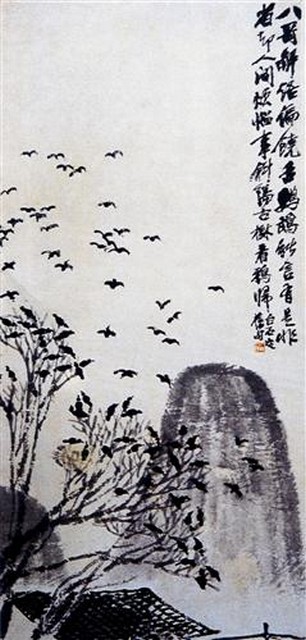 八哥解語偏饒舌鸚鵡能言有是非
省却人間煩惱事斜陽古樹看鴉歸
白石